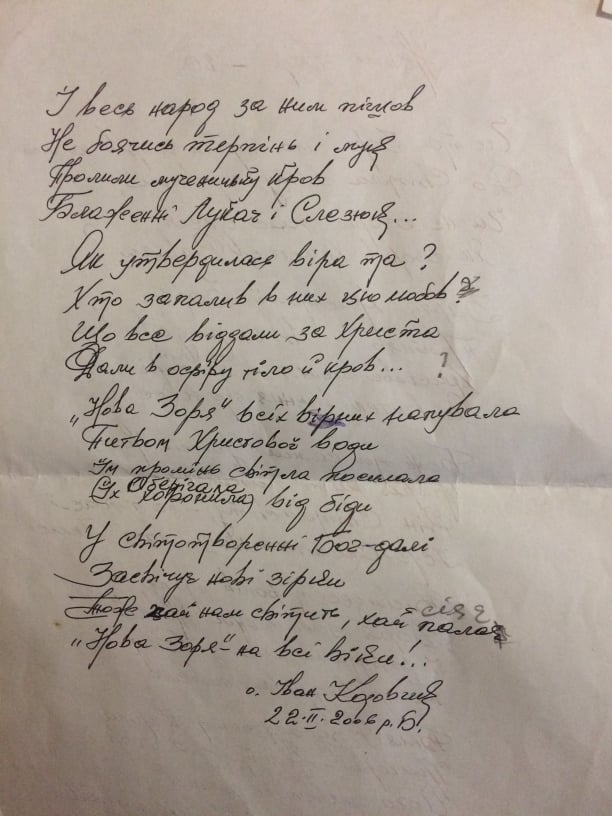 І весь народ за ним пішов
Не боячись терпінь і мук
Пролили мученицьку кров
Блаженні Лукач і Слезюк...
Як утвердилася віра та ?
Хто запалив в них цю любов?
Що все віддали за Христа
Дали в офіру тіло й кров... ?
„Нова Зоря" всіх вірних напувала
Питвом Христової води
Їм промінь світла посилала
Оберігала
(Їх хоронила) від біди
У світотворенні Бог далі
Засвічує нові зірки
Тож хай нам світить, хай палає
сіяє
„Нова Зоря" на всі віки!..
о. Іван Козовик
22·II·2006 р.Б.